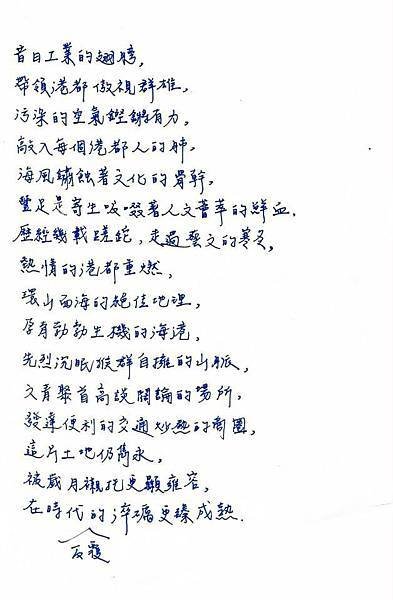 昔日工業的翅膀，
帶領港都傲視群雄，
污染的空氣鏗鏘有力，
敲入每個港都人的肺，
海風鏽蝕著文化的骨幹，
豐足是寄生吸啜著人文薈萃的鮮血．
歷經幾載蹉跎，走過藝文的寒冬，
熱情的港都重燃，
環山面海的絕佳地理，
孕育勃勃生機的海港，
先烈沉眠猴群自擁的山脈，
文青聚首高談闊論的場所，
發達便利的交通炒熱的商圈，
這片土地仍雋永，
被歲月襯托更顯雍容，
在時代的反覆淬礪更臻成熟．